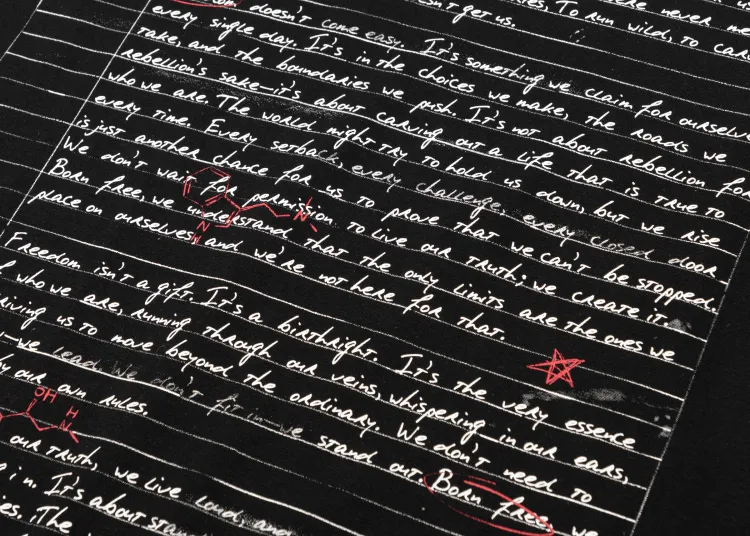 where never me
ies, To run wild, to carv
sn't get us.
doesn't come easy. It's something we claim for ourselv
every single day. It's in the choices we make, the roads we
take, and the boundaries we push. It's not about rebellion fo
rebellion's sake—it's about carving out a life that is true to
who we are. The world might try to hold us down, but we rise
every time. Every setback, every challenge, every closed door
is just another chance for us to prove that we can't be stopped.
We don't wait for permission to live our truth; we create it.
Born free, we understand that the only limits are the ones we
place on ourselves and we're not here for that.
N
H
N
Freedom isn't a gift. It's a birthright. It's the very essence
f who we are, running through our veins, whispering in our ears,
riving us to move beyond the ordinary. We don't need to
—we lead. We don't fit in—we stand out. Born free, we
by our own rules.
OH
H
N
our truth, we live loud, and
g in. It's about stand
ies. The